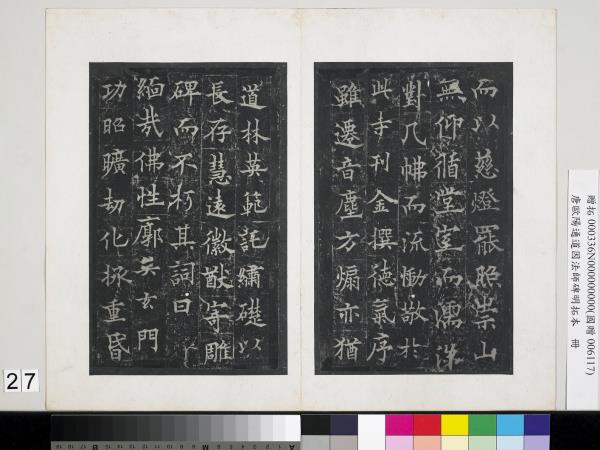 而以慈燈罷照崇山
無仰循堂室而濡洟
對几怫而流慟敬於
此寺刊金撰德氣序
雖遷音塵方煽亦猶
道林英範託繡礎以
長存慧遠徽猷寄雕
碑而不朽其詞曰
緬哉佛性廓矣玄門
功昭曠劫化拯重昏
贈拓 000336N000000000(國贈 006117)
唐歐陽通道因法師碑明拓本 冊
27